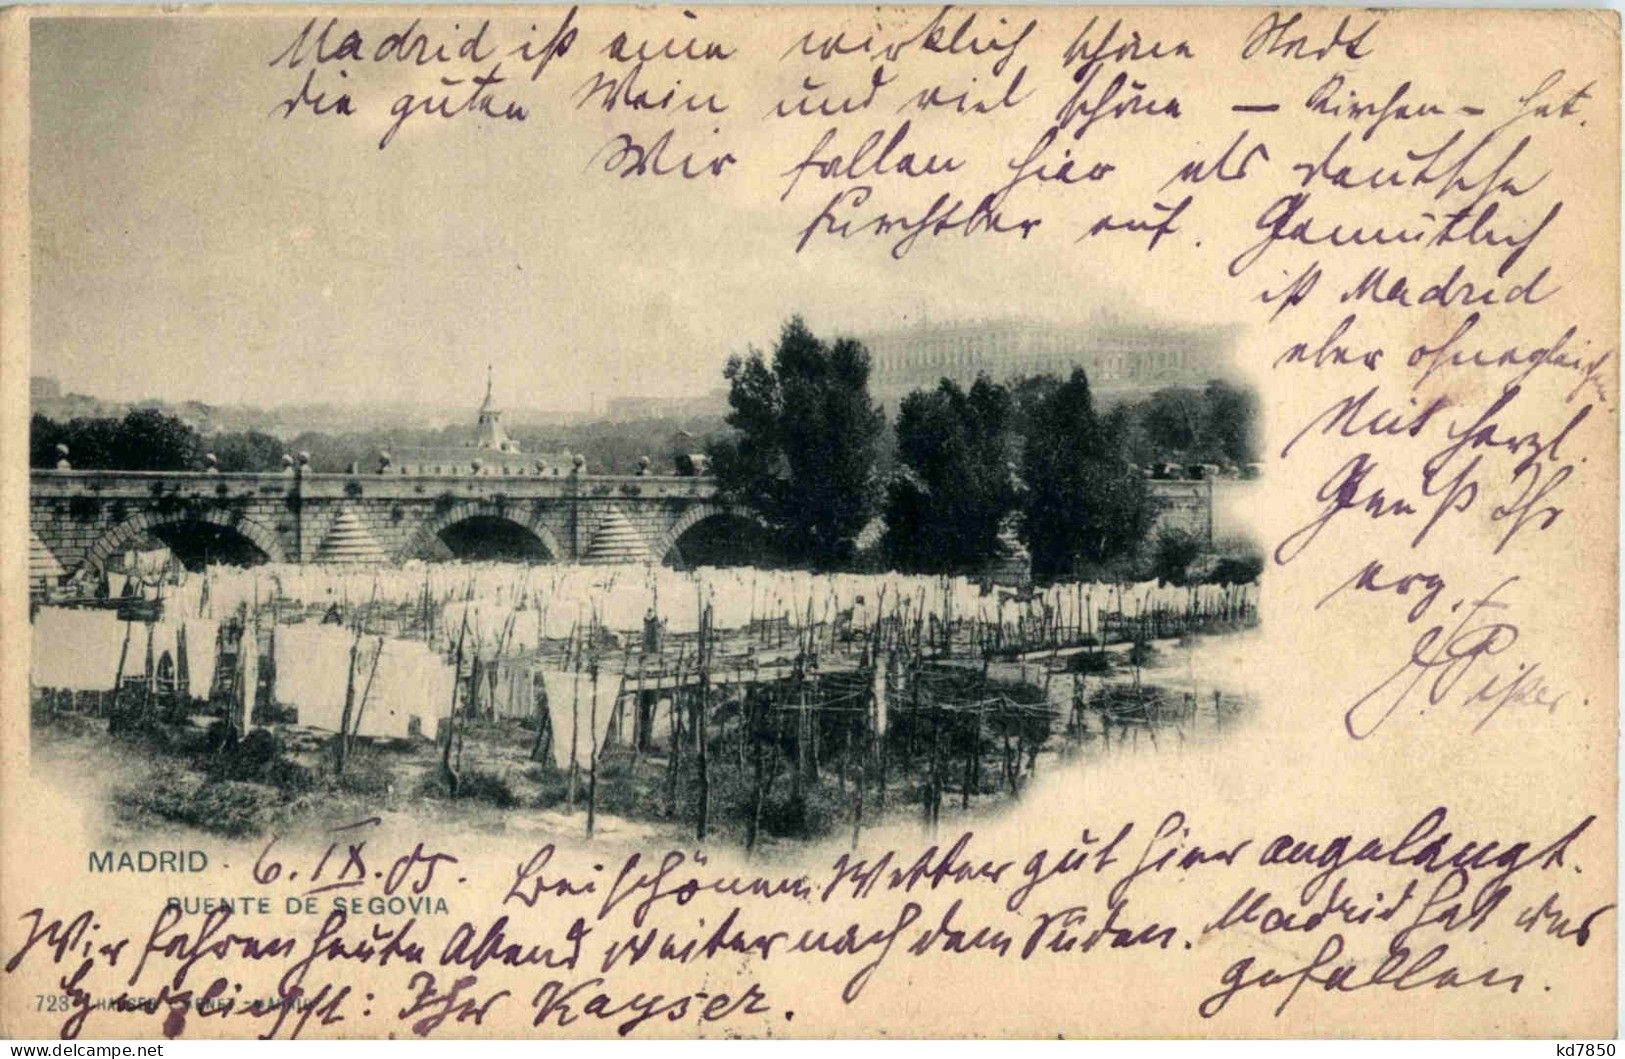 Madrid ist eine wirklich schöne Stadt
die guten Wein und viel schöne — Kirchen — hat.
Wir fallen hier als deutsche
furchtbar auf. Gemütlich
ist Madrid
aber ohnegleichen.
Mit herzl.
Gruß Ihr
erg.
MADRID
PUENTE DE SEGOVIA
6. IX. 05. Bei schönem Wetter gut hier angelangt.
Wir fahren heute Abend weiter nach dem Süden. Madrid hat uns
gefallen.
Herzlichst: Ihr Kayser.
723 HAUSER Y MENET - MADRID
kd7850